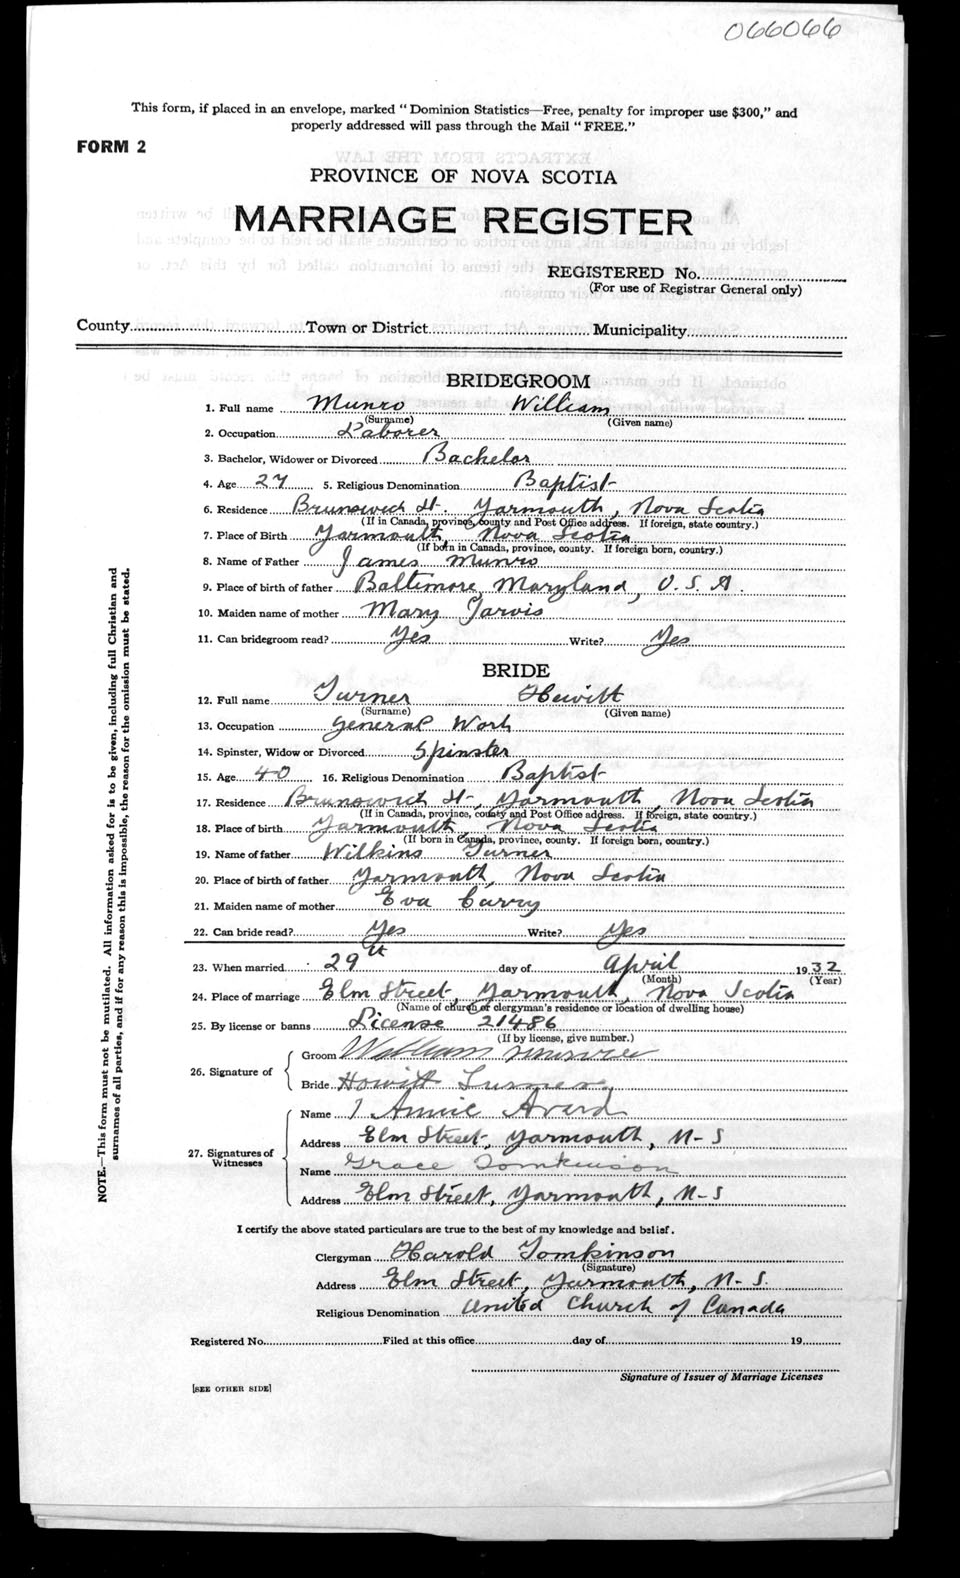 066066
This form, if placed in an envelope, marked "Dominion Statistics—Free, penalty for improper use $300," and
properly addressed will pass through the Mail "FREE."
FORM 2
PROVINCE OF NOVA SCOTIA
MARRIAGE REGISTER
REGISTERED No.
(For use of Registrar General only)
County Town or District Municipality
BRIDEGROOM
1. Full name Munro William
(Surname) (Given name)
2. Occupation Laborer
3. Bachelor, Widower or Divorced Bachelor
4. Age 27 5. Religious Denomination Baptist
6. Residence Brunswick St. Yarmouth, Nova Scotia
(If in Canada, province, county and Post Office address. If foreign, state country.)
7. Place of Birth Yarmouth, Nova Scotia
(If born in Canada, province, county. If foreign born, country.)
8. Name of Father James Munro
9. Place of birth of father Baltimore, Maryland, U.S.A.
10. Maiden name of mother Mary Jarvis
11. Can bridegroom read? Yes Write? Yes
BRIDE
12. Full name Turner Hewitt
(Surname) (Given name)
13. Occupation General Work
14. Spinster, Widow or Divorced Spinster
15. Age 40 16. Religious Denomination Baptist
17. Residence Brunswick St., Yarmouth, Nova Scotia
(If in Canada, province, county and Post Office address. If foreign, state country.)
18. Place of birth Yarmouth, Nova Scotia
(If born in Canada, province, county. If foreign born, country.)
19. Name of father Wilkins Turner
20. Place of birth of father Yarmouth, Nova Scotia
21. Maiden name of mother Eva Carry
22. Can bride read? Yes Write? Yes
23. When married 29th day of April 1932
(Month) (Year)
24. Place of marriage Elm Street, Yarmouth, Nova Scotia
(Name of church or clergyman's residence or location of dwelling house)
25. By license or banns License 21486
(If by license, give number.)
26. Signature of
Groom William
Bride Howitt Turner
27. Signatures of Witnesses
Name Annie Avard
Address Elm Street, Yarmouth, N-S
Name Grace Tomkinson
Address Elm Street, Yarmouth, N-S
I certify the above stated particulars are true to the best of my knowledge and belief.
Clergyman Harold Tomkinson
(Signature)
Address Elm Street, Yarmouth, N-S.
Religious Denomination United Church of Canada
Registered No. Filed at this office day of 19
Signature of Issuer of Marriage Licenses
[SEE OTHER SIDE]
NOTE.—This form must not be mutilated. All information asked for is to be given, including full Christian and
surnames of all parties, and if for any reason this is impossible, the reason for the omission must be stated.